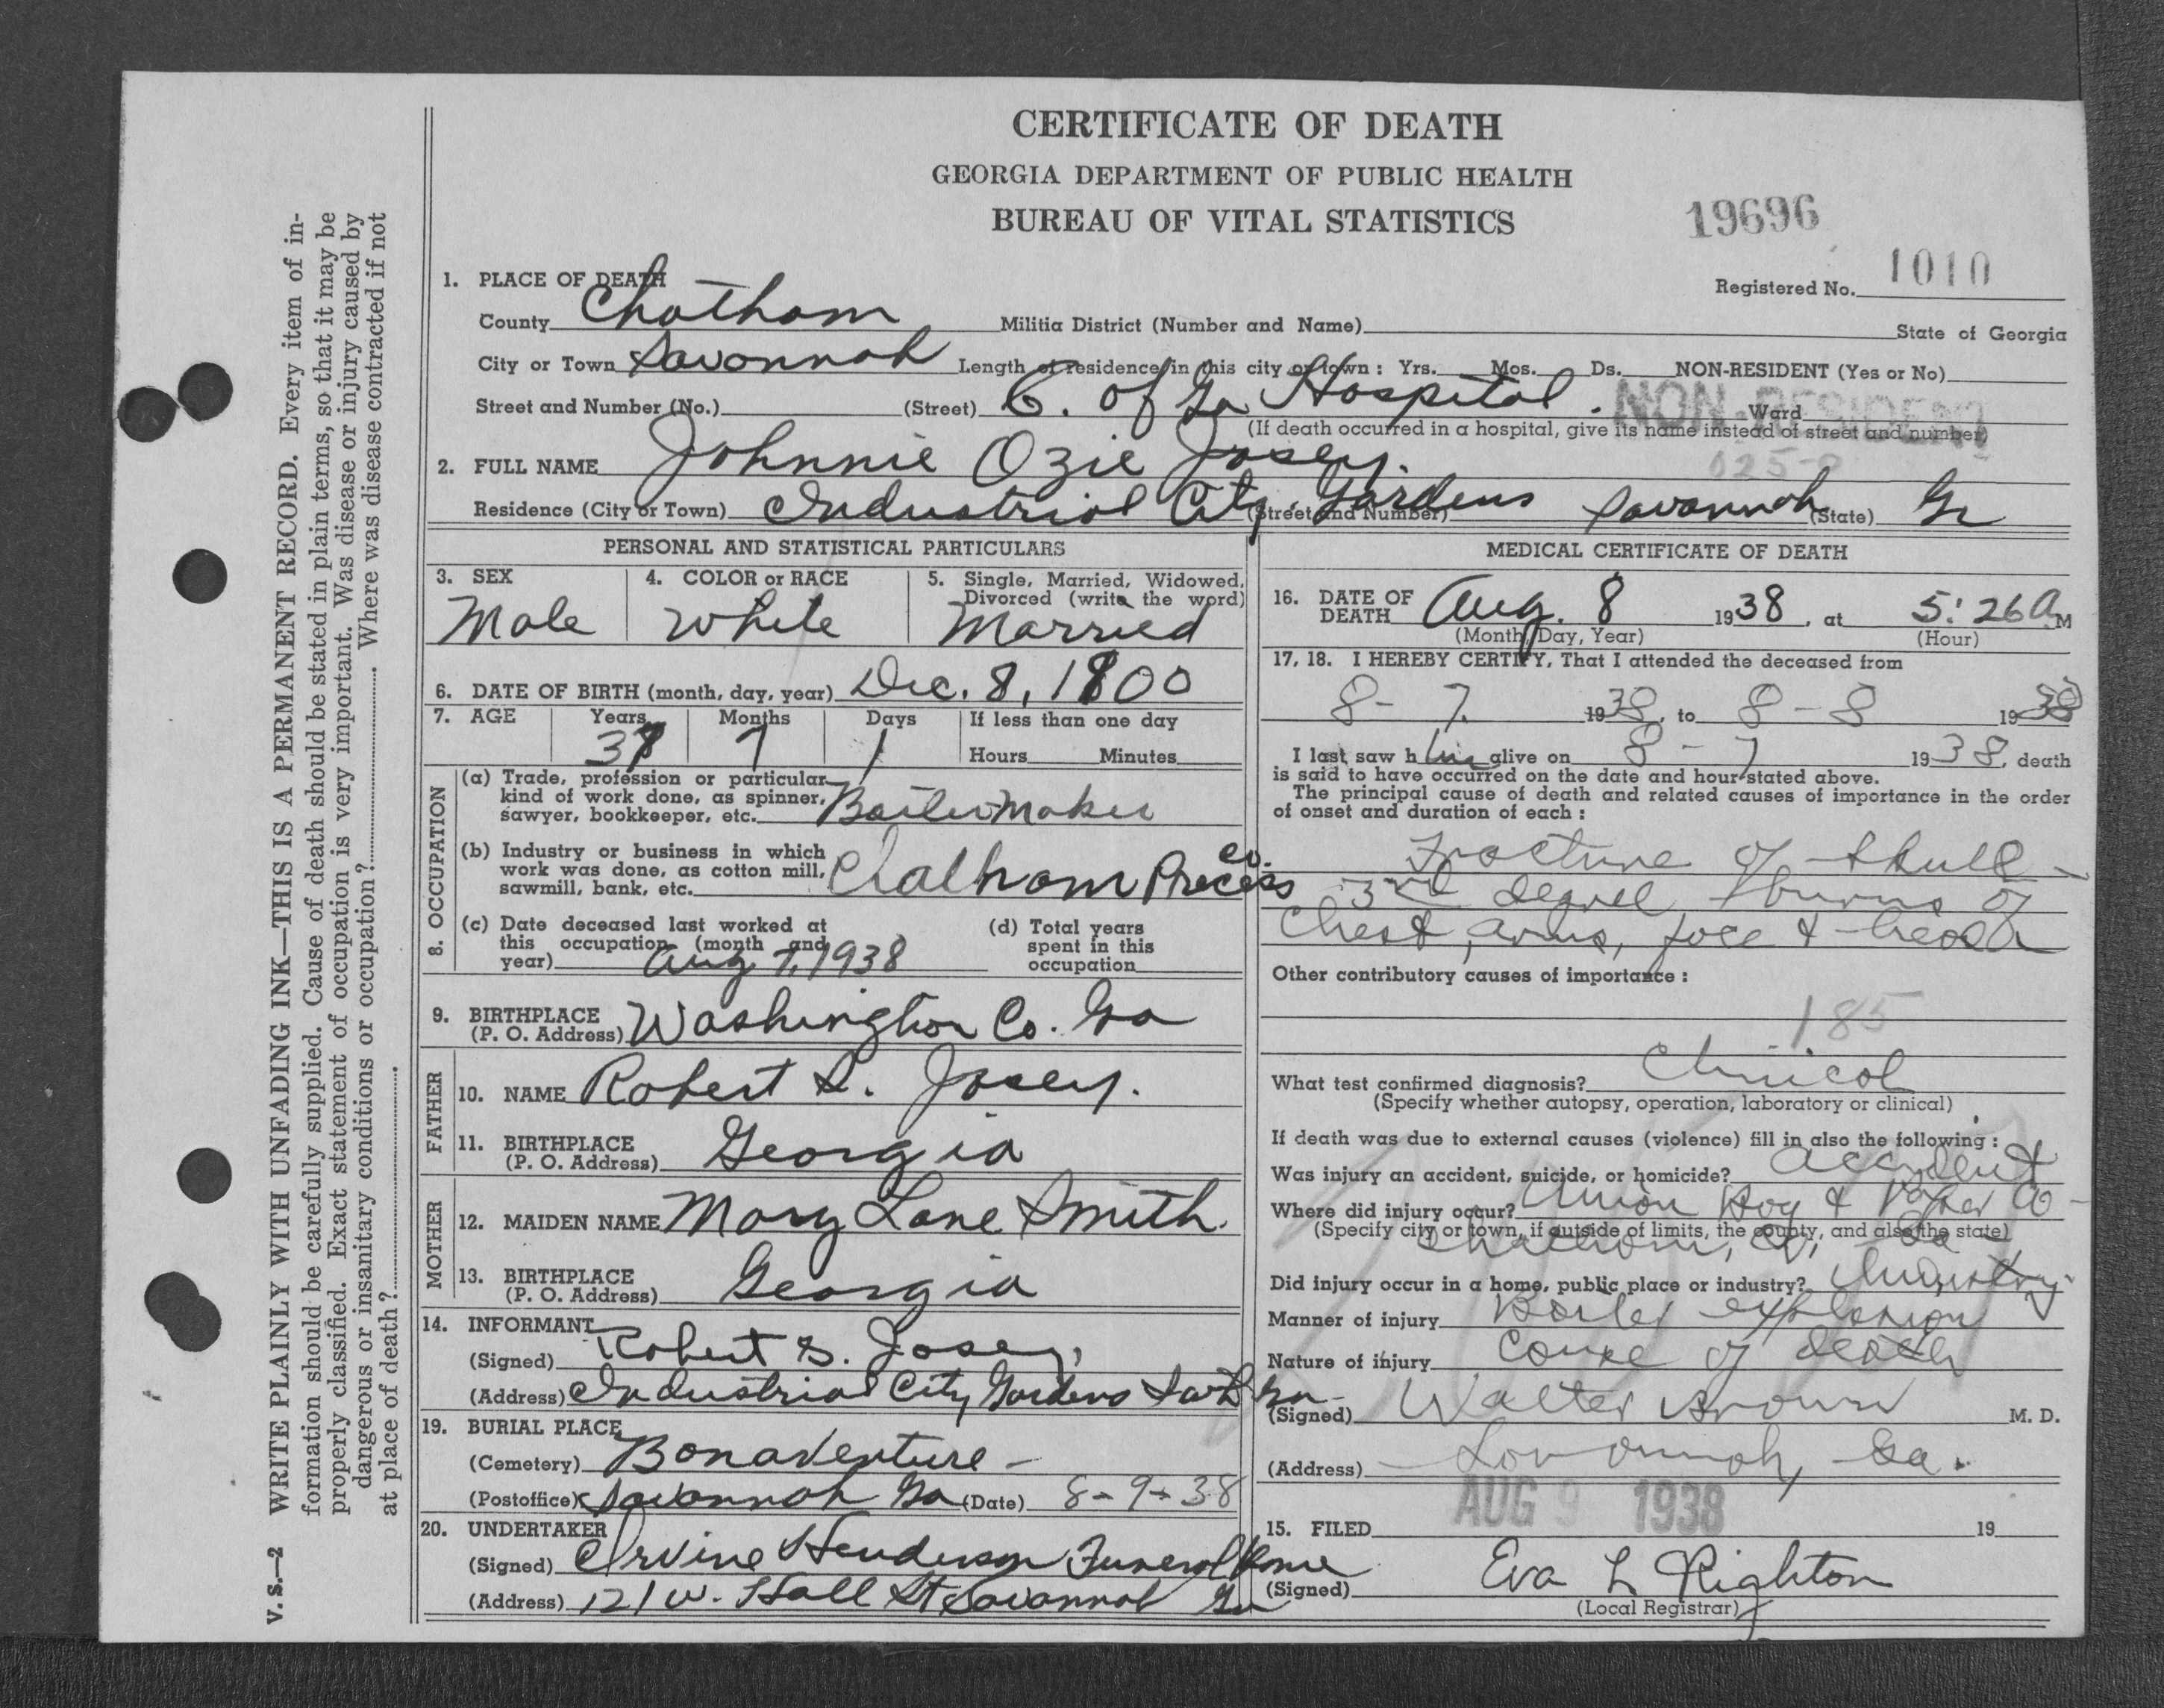 CERTIFICATE OF DEATH
GEORGIA DEPARTMENT OF PUBLIC HEALTH
BUREAU OF VITAL STATISTICS
19696
1. PLACE OF DEATH
Registered No. 1010
County Chatham Militia District (Number and Name) State of Georgia
City or Town Savannah Length of residence in this city or town: Yrs. Mos. Ds. NON-RESIDENT (Yes or No)
Street and Number (No.) (Street) C. of Ga Hospital. Ward
NON-RESIDENT
(If death occurred in a hospital, give its name instead of street and number)
2. FULL NAME Johnnie Ozie Josey.
Residence (City or Town) Industrial City Gardens (Street and Number) Savannah (State) Ga
PERSONAL AND STATISTICAL PARTICULARS
3. SEX Male
4. COLOR or RACE White
5. Single, Married, Widowed, Divorced (write the word) Married
6. DATE OF BIRTH (month, day, year) Dec. 8, 1900
7. AGE Years Months Days If less than one day
37 7 1 Hours Minutes
8. OCCUPATION
(a) Trade, profession or particular
kind of work done, as spinner,
sawyer, bookkeeper, etc. Boilermaker
(b) Industry or business in which
work was done, as cotton mill,
sawmill, bank, etc. Chatham Process Co.
(c) Date deceased last worked at
this occupation (month and
year) Aug 7, 1938
(d) Total years
spent in this
occupation
9. BIRTHPLACE
(P. O. Address) Washington Co. Ga
FATHER
10. NAME Robert S. Josey.
11. BIRTHPLACE
(P. O. Address) Georgia
MOTHER
12. MAIDEN NAME Mary Lane Smith.
13. BIRTHPLACE
(P. O. Address) Georgia
14. INFORMANT
(Signed) Robert S. Josey,
(Address) Industrial City Gardens Sav Ga
19. BURIAL PLACE
(Cemetery) Bonaventure
(Postoffice) Savannah Ga (Date) 8-9-38
20. UNDERTAKER
(Signed) Irvine Henderson Funeral Home
(Address) 121 W. Hall St Savannah Ga
MEDICAL CERTIFICATE OF DEATH
16. DATE OF
DEATH Aug. 8 1938, at 5:26 a.M
(Month, Day, Year) (Hour)
17, 18. I HEREBY CERTIFY, That I attended the deceased from
8-7 1938, to 8-8 1938
I last saw him alive on 8-7 1938, death
is said to have occurred on the date and hour stated above.
The principal cause of death and related causes of importance in the order
of onset and duration of each:
Fracture of skull -
3rd degree burns of
Chest, arms, face & head
Other contributory causes of importance:
185
What test confirmed diagnosis? Clinical
(Specify whether autopsy, operation, laboratory or clinical)
If death was due to external causes (violence) fill in also the following:
Was injury an accident, suicide, or homicide? accident
Where did injury occur? Union Bag & Paper Co -
(Specify city or town, if outside of limits, the county, and also the state)
Chatham, Co, Ga
Did injury occur in a home, public place or industry? Industry
Manner of injury Boiler explosion
Nature of injury cause of death
(Signed) Walter Brown M. D.
(Address) Savannah, Ga.
15. FILED AUG 9 1938 19
(Signed) Eva L Righton
(Local Registrar)
V. S.—2 WRITE PLAINLY WITH UNFADING INK—THIS IS A PERMANENT RECORD. Every item of in-
formation should be carefully supplied. Cause of death should be stated in plain terms, so that it may be
properly classified. Exact statement of occupation is very important. Was disease or injury caused by
dangerous or insanitary conditions or occupation? Where was disease contracted if not
at place of death?